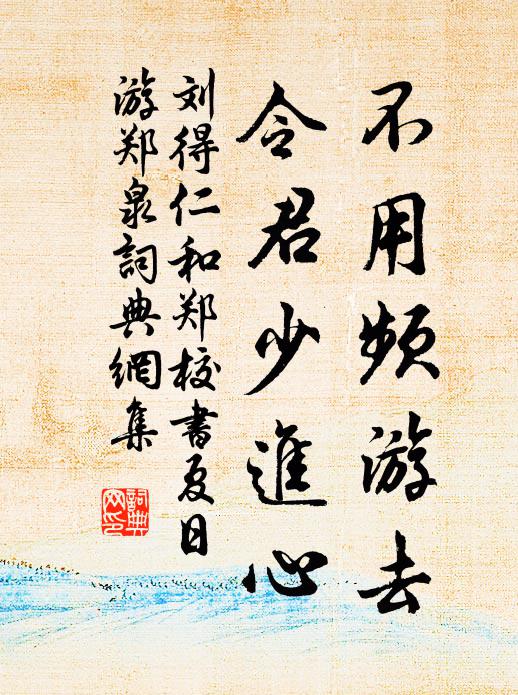 不用频游去
令君少進心
刘得仁和郑校書夏日
游郑泉詞典網集
詞典网印